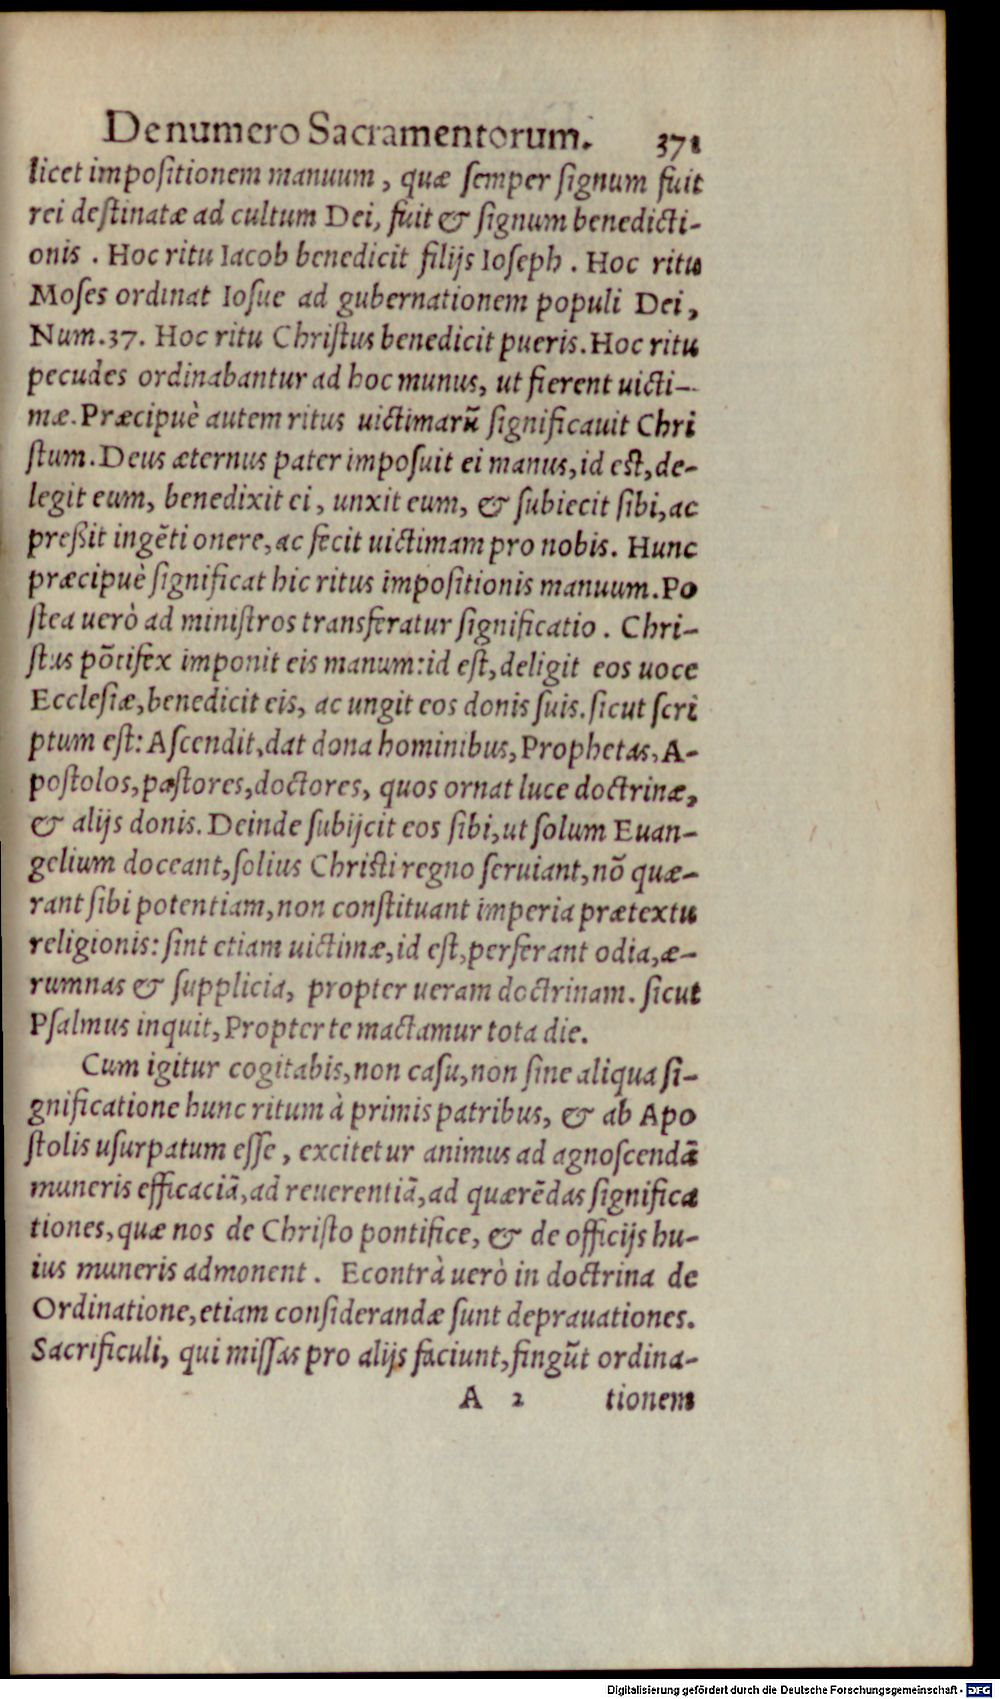 De numero Sacramentorum. 371
licet impositionem manuum, quæ semper signum fuit
rei destinatæ ad cultum Dei, fuit & signum benedicti-
onis. Hoc ritu Iacob benedicit filijs Ioseph. Hoc ritu
Moses ordinat Iosue ad gubernationem populi Dei,
Num. 37. Hoc ritu Christus benedicit pueris. Hoc ritu
pecudes ordinabantur ad hoc munus, ut fierent uicti-
mæ. Præcipuè autem ritus uictimarũ significauit Chri
stum. Deus æternus pater imposuit ei manus, id est, de-
legit eum, benedixit ei, unxit eum, & subiecit sibi, ac
preßit ingẽti onere, ac fecit uictimam pro nobis. Hunc
præcipuè significat hic ritus impositionis manuum. Po
stea uerò ad ministros transferatur significatio. Chri-
stus põtifex imponit eis manum: id est, deligit eos uoce
Ecclesiæ, benedicit eis, ac ungit eos donis suis. sicut scri
ptum est: Ascendit, dat dona hominibus, Prophetas, A-
postolos, pastores, doctores, quos ornat luce doctrinæ,
& alijs donis. Deinde subijcit eos sibi, ut solum Euan-
gelium doceant, solius Christi regno seruiant, nõ quæ-
rant sibi potentiam, non constituant imperia prætextu
religionis: sint etiam uictimæ, id est, perferant odia, æ-
rumnas & supplicia, propter ueram doctrinam. sicut
Psalmus inquit, Propter te mactamur tota die.
Cum igitur cogitabis, non casu, non sine aliqua si-
gnificatione hunc ritum à primis patribus, & ab Apo
stolis usurpatum esse, excitetur animus ad agnoscendã
muneris efficaciã, ad reuerentiã, ad quærẽdas significa
tiones, quæ nos de Christo pontifice, & de officijs hu-
ius muneris admonent. Econtrà uerò in doctrina de
Ordinatione, etiam considerandæ sunt deprauationes.
Sacrificuli, qui missas pro alijs faciunt, fingũt ordina-
A 2 tionem
Digitalisierung gefördert durch die Deutsche Forschungsgemeinschaft - DFG